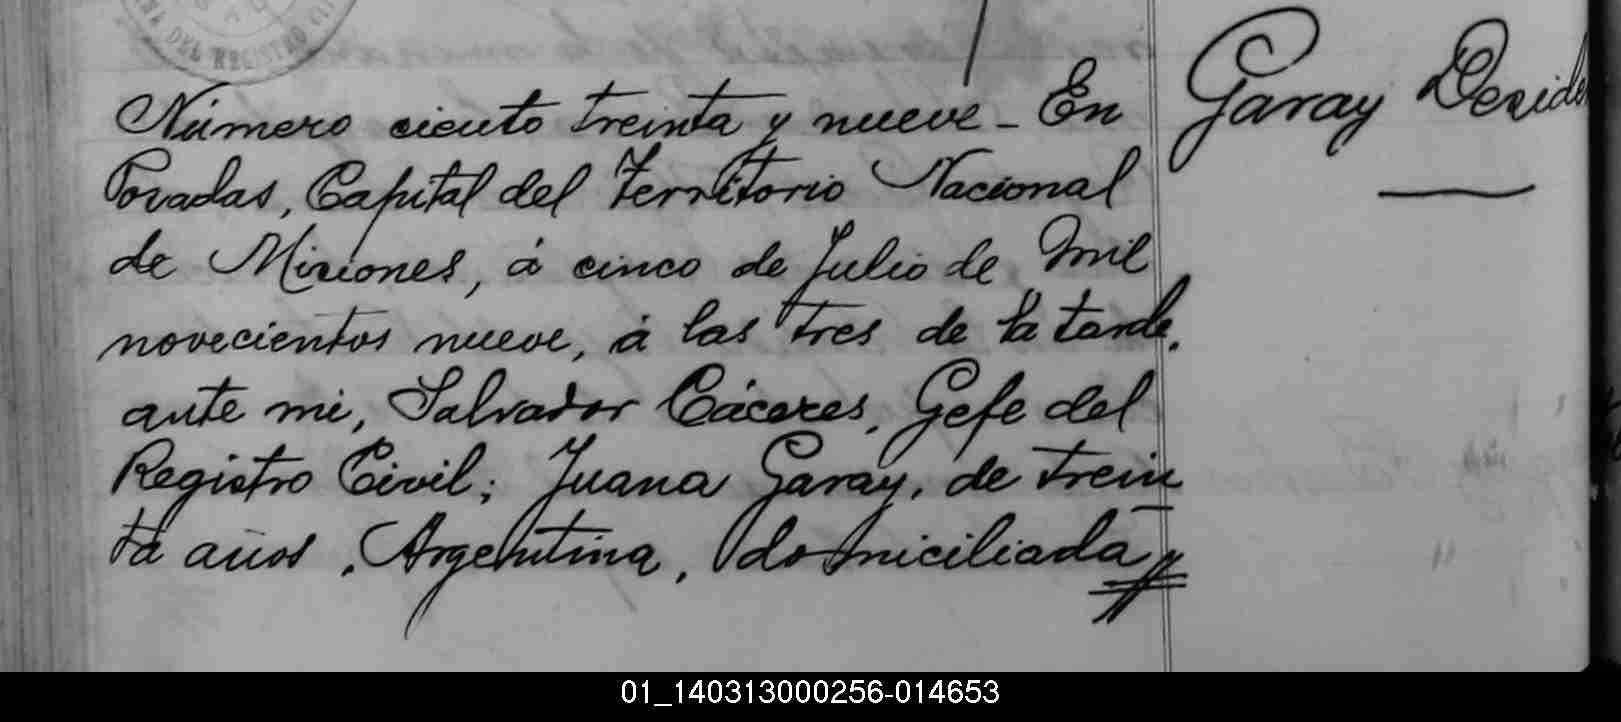 DEL REGISTRO CI
Número ciento treinta y nueve - En
Posadas, Capital del Territorio Nacional
de Misiones, á cinco de Julio de Mil
novecientos nueve, á las tres de la tarde,
ante mi, Salvador Cáceres, Gefe del
Registro Civil; Juana Garay, de trein
ta años, Argentina, domiciliada
Garay Deside
01_140313000256-014653